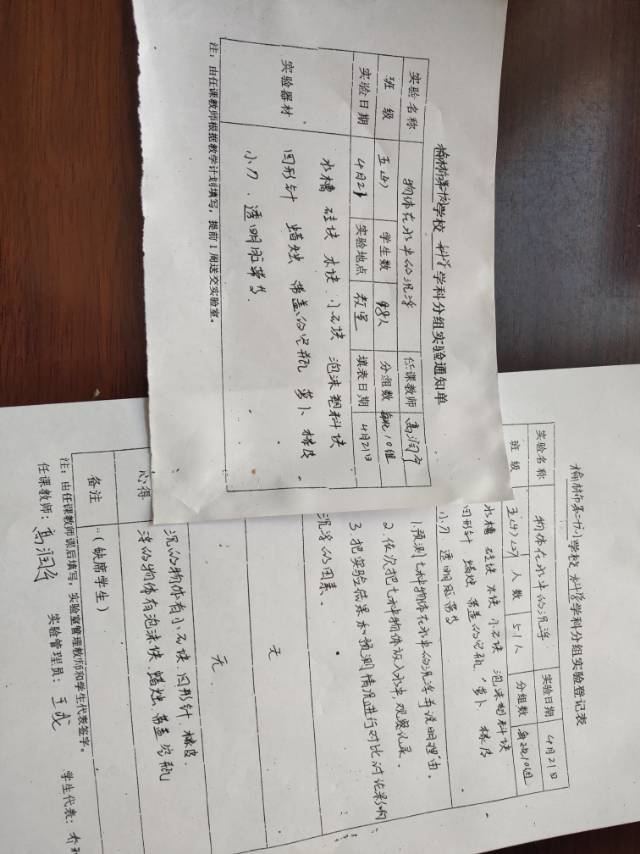 学校 科学 学科分组实验通知单
实验名称 物体在水中的沉浮 任课教师
班级 五(4) 学生数 48人 分组数 每班10组
实验日期 4月21 实验地点 教室 填表日期 4月21日
实验器材
水槽 硅块 木块 小石块 泡沫塑料块
回形针 蜡烛 带盖的空瓶 萝卜 橡皮
小刀 . 透明胶带等.
注:由任课教师根据教学计划填写,提前1周送交实验室。
学校 科学 学科分组实验登记表
实验名称 物体在水中的沉浮 实验日期 4月21日
班级 人数 51人 分组数 每班10组
水槽 硅块 木块 小石块 泡沫塑料块
回形针 蜡烛 带盖的空瓶 萝卜 橡皮
小刀 透明胶带等
1.预测七种物体在水中的沉浮并说明理由.
2.依次把七种物体放入水中观察记录.
3.把实验结果和预测情况进行对比讨论影响
沉浮的因素.
无
无
沉的物体有小石块.回形针.橡皮.
浮的物体有泡沫块 蜡烛.带盖空瓶
心得
备注 (缺席学生)
注:由任课教师课后填写,实验室管理教师和学生代表签字。
任课教师: 实验管理员: 学生代表: